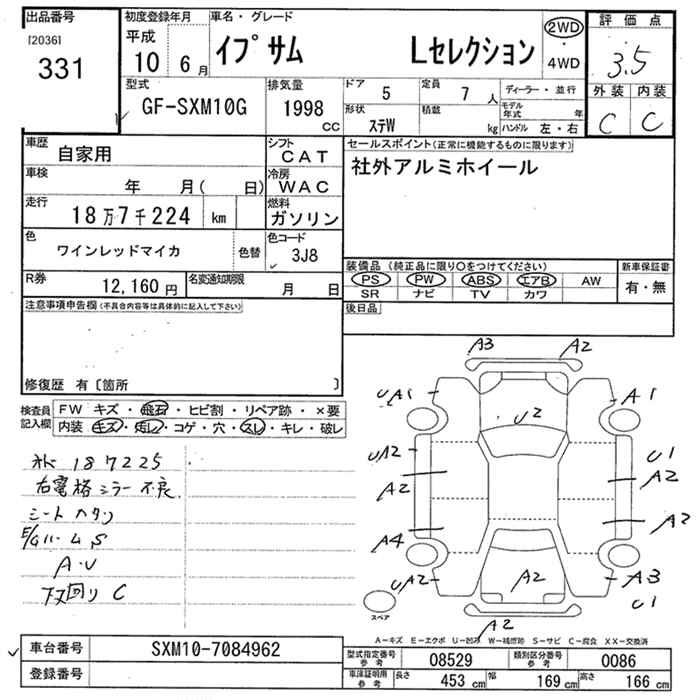 出品番号 初度登録年月 車名・グレード 評価点
[2036]
331
平成 10 6月 イプサム Lセレクション 2WD・4WD 3.5
型式 GF-SXM10G 排気量 1998 CC
ドア 5 定員 7人 ディーラー・並行 外装 内装
形状 ステW 積載 kg モデル年式 年 C C
ハンドル 左・右
車歴 自家用 シフト CAT セールスポイント(正常に機能するものに限ります)
車検 年 月( 日) 冷房 WAC 社外アルミホイール
走行 18万7千224 km 燃料 ガソリン
色 ワインレッドマイカ 色替 色コード 3J8
R券 12,160円 名変通知期限 月 日
装備品(純正品に限り○をつけてください) 新車保証書
PS PW ABS エアB AW 有・無
SR ナビ TV カワ
注意事項申告欄(不具合内容等は具体的に記入して下さい) 後日品
修復歴 有〔箇所 〕
検査員記入欄 FW キズ・飛石・ヒビ割・リペア跡・×要
内装 キズ・汚レ・コゲ・穴・スレ・キレ・破レ
187225
右電格ミラー不良
シートヘタリ
E/Gルーム S
A・U
下廻り C
A3 A2
UA1 A1
U2
UA2 U1
A2 A2
A4 A2
UA2 A2 A3
U1
A2
スペア
A-キズ E-エクボ U-凹み W-補修跡 S-サビ C-腐食 XX-交換済
車台番号 SXM10-7084962
登録番号
型式指定番号 参考 08529 類別区分番号 参考 0086
車庫証明用 参考 長さ 453 cm 幅 169 cm 高さ 166 cm